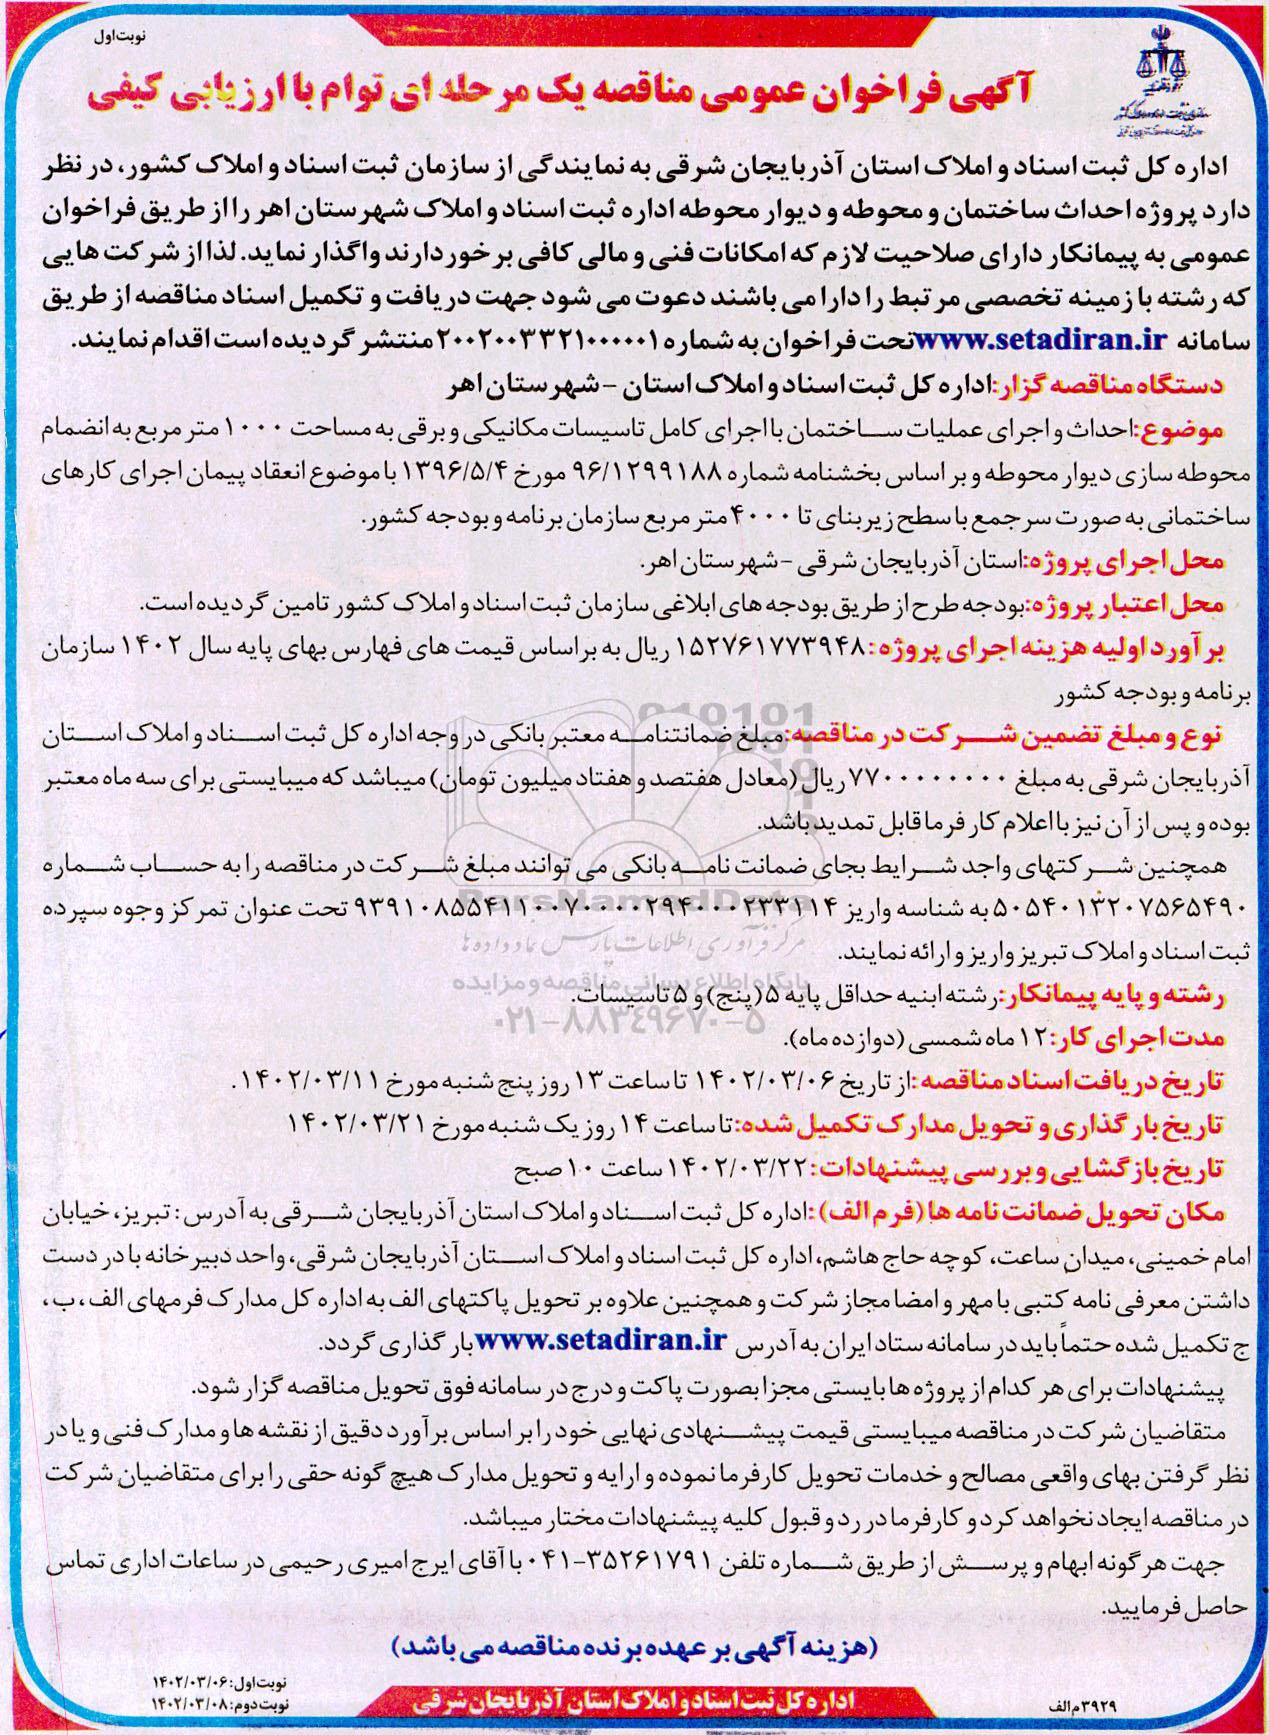 نوبت اول
آگهی فراخوان عمومی مناقصه یک مرحله ای توام با ارزیابی کیفی
اداره کل ثبت اسناد و املاک استان آذربایجان شرقی به نمایندگی از سازمان ثبت اسناد و املاک کشور، در نظر
دارد پروژه احداث ساختمان و محوطه و دیوار محوطه اداره ثبت اسناد و املاک شهرستان اهر را از طریق فراخوان
عمومی به پیمانکار دارای صلاحیت لازم که امکانات فنی و مالی کافی برخوردارند واگذار نماید. لذا از شرکت هایی
که رشته با زمینه تخصصی مرتبط را دارا می باشند دعوت می شود جهت دریافت و تکمیل اسناد مناقصه از طریق
سامانه www.setadiran.ir تحت فراخوان به شماره ۲۰۰۲۰۰۳۳۲۱۰۰۰۰۰۱ منتشر گردیده است اقدام نمایند.
دستگاه مناقصه گزار: اداره کل ثبت اسناد و املاک استان - شهرستان اهر
موضوع: احداث و اجرای عملیات ساختمان با اجرای کامل تاسیسات مکانیکی و برقی به مساحت ۱۰۰۰ متر مربع به انضمام
محوطه سازی دیوار محوطه و بر اساس بخشنامه شماره ۹۶/۱۲۹۹۱۸۸ مورخ ۱۳۹۶/۵/۴ با موضوع انعقاد پیمان اجرای کارهای
ساختمانی به صورت سرجمع با سطح زیربنای تا ۴۰۰۰ متر مربع سازمان برنامه و بودجه کشور.
محل اجرای پروژه: استان آذربایجان شرقی - شهرستان اهر.
محل اعتبار پروژه: بودجه طرح از طریق بودجه های ابلاغی سازمان ثبت اسناد و املاک کشور تامین گردیده است.
برآورد اولیه هزینه اجرای پروژه: ۱۵۲۷۶۱۷۷۳۹۴۸ ریال به براساس قیمت های فهارس بهای پایه سال ۱۴۰۲ سازمان
برنامه و بودجه کشور
نوع و مبلغ تضمین شرکت در مناقصه: مبلغ ضمانتنامه معتبر بانکی در وجه اداره کل ثبت اسناد و املاک استان
آذربایجان شرقی به مبلغ ۷۷۰۰۰۰۰۰۰۰ ریال (معادل هفتصد و هفتاد میلیون تومان) میباشد که میبایستی برای سه ماه معتبر
بوده و پس از آن نیز با اعلام کارفرما قابل تمدید باشد.
همچنین شرکتهای واجد شرایط بجای ضمانت نامه بانکی می توانند مبلغ شرکت در مناقصه را به حساب شماره
۵۰۵۴۰۱۳۲۰۷۵۶۵۴۹۰ به شناسه واریز ۹۳۹۱۰۸۵۵۴۱۱۰۰۷۰۰۰۰۲۹۴۰۰۰۲۳۳۱۱۴ تحت عنوان تمرکز وجوه سپرده
ثبت اسناد و املاک تبریز واریز و ارائه نمایند.
ParsNamadData
مرکز فرآوری اطلاعات پارس نماد داده ها
پایگاه اطلاع رسانی مناقصه و مزایده
۰۲۱-۸۸۳۴۹۶۷۰-۵
رشته و پایه پیمانکار: رشته ابنیه حداقل پایه ۵ (پنج) و ۵ تاسیسات.
مدت اجرای کار: ۱۲ ماه شمسی (دوازده ماه).
تاریخ دریافت اسناد مناقصه: از تاریخ ۱۴۰۲/۰۳/۰۶ تا ساعت ۱۳ روز پنج شنبه مورخ ۱۴۰۲/۰۳/۱۱.
تاریخ بارگذاری و تحویل مدارک تکمیل شده: تا ساعت ۱۴ روز یک شنبه مورخ ۱۴۰۲/۰۳/۲۱
تاریخ بازگشایی و بررسی پیشنهادات: ۱۴۰۲/۰۳/۲۲ ساعت ۱۰ صبح
مکان تحویل ضمانت نامه ها (فرم الف): اداره کل ثبت اسناد و املاک استان آذربایجان شرقی به آدرس: تبریز، خیابان
امام خمینی، میدان ساعت، کوچه حاج هاشم، اداره کل ثبت اسناد و املاک استان آذربایجان شرقی، واحد دبیرخانه با در دست
داشتن معرفی نامه کتبی با مهر و امضا مجاز شرکت و همچنین علاوه بر تحویل پاکتهای الف به اداره کل مدارک فرمهای الف، ب،
ج تکمیل شده حتماً باید در سامانه ستاد ایران به آدرس www.setadiran.ir بارگذاری گردد.
پیشنهادات برای هر کدام از پروژه ها بایستی مجزا بصورت پاکت و درج در سامانه فوق تحویل مناقصه گزار شود.
متقاضیان شرکت در مناقصه میبایستی قیمت پیشنهادی نهایی خود را بر اساس برآورد دقیق از نقشه ها و مدارک فنی و یا در
نظر گرفتن بهای واقعی مصالح و خدمات تحویل کارفرما نموده و ارایه و تحویل مدارک هیچ گونه حقی را برای متقاضیان شرکت
در مناقصه ایجاد نخواهد کرد و کارفرما در رد و قبول کلیه پیشنهادات مختار میباشد.
جهت هرگونه ابهام و پرسش از طریق شماره تلفن ۳۵۲۶۱۷۹۱-۰۴۱ با آقای ایرج امیری رحیمی در ساعات اداری تماس
حاصل فرمایید.
(هزینه آگهی بر عهده برنده مناقصه می باشد)
نوبت اول: ۱۴۰۲/۰۳/۰۶
نوبت دوم: ۱۴۰۲/۰۳/۰۸
اداره کل ثبت اسناد و املاک استان آذربایجان شرقی
۳۹۲۹ م الف